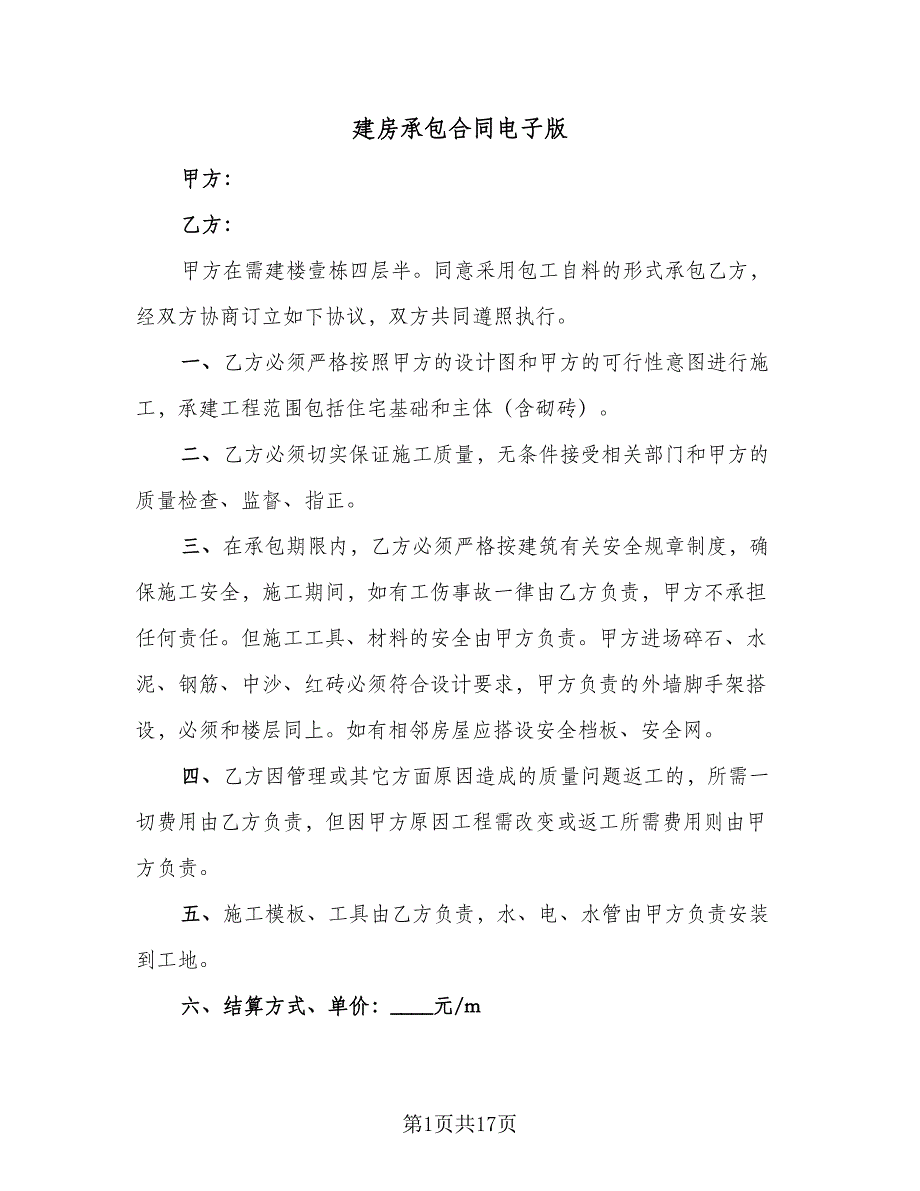 建房承包合同电子版
甲方：
乙方：
甲方在需建楼壹栋四层半。同意采用包工自料的形式承包乙方，
经双方协商订立如下协议，双方共同遵照执行。
一、乙方必须严格按照甲方的设计图和甲方的可行性意图进行施
工，承建工程范围包括住宅基础和主体（含砌砖）。
二、乙方必须切实保证施工质量，无条件接受相关部门和甲方的
质量检查、监督、指正。
三、在承包期限内，乙方必须严格按建筑有关安全规章制度，确
保施工安全，施工期间，如有工伤事故一律由乙方负责，甲方不承担
任何责任。但施工工具、材料的安全由甲方负责。甲方进场碎石、水
泥、钢筋、中沙、红砖必须符合设计要求，甲方负责的外墙脚手架搭
设，必须和楼层同上。如有相邻房屋应搭设安全档板、安全网。
四、乙方因管理或其它方面原因造成的质量问题返工的，所需一
切费用由乙方负责，但因甲方原因工程需改变或返工所需费用则由甲
方负责。
五、施工模板、工具由乙方负责，水、电、水管由甲方负责安装
到工地。
六、结算方式、单价：____元/m
第1页共17页